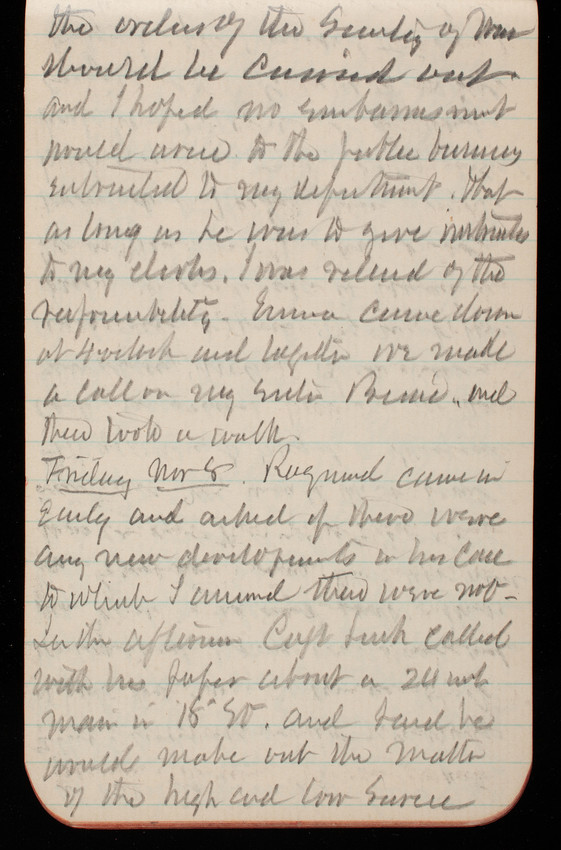 the orders of the Secretary of War
should be carried out
and I hoped no embarrassment
would arise to the public business
entrusted to my department. That
as long as he was to give instructions
to my clerks, I was relieved of the
responsibility. Emma came down
at 4 oclock and together we made
a call on my sister and
then took a walk.
Friday Nov 8. Raymond came in
Early and asked if there were
any new developments in his case
to which I answered there were not -
In the afternoon Capt called
with his paper about a 24 inch
main in 18" St. and said he
would make out the matter
of the high and low Service